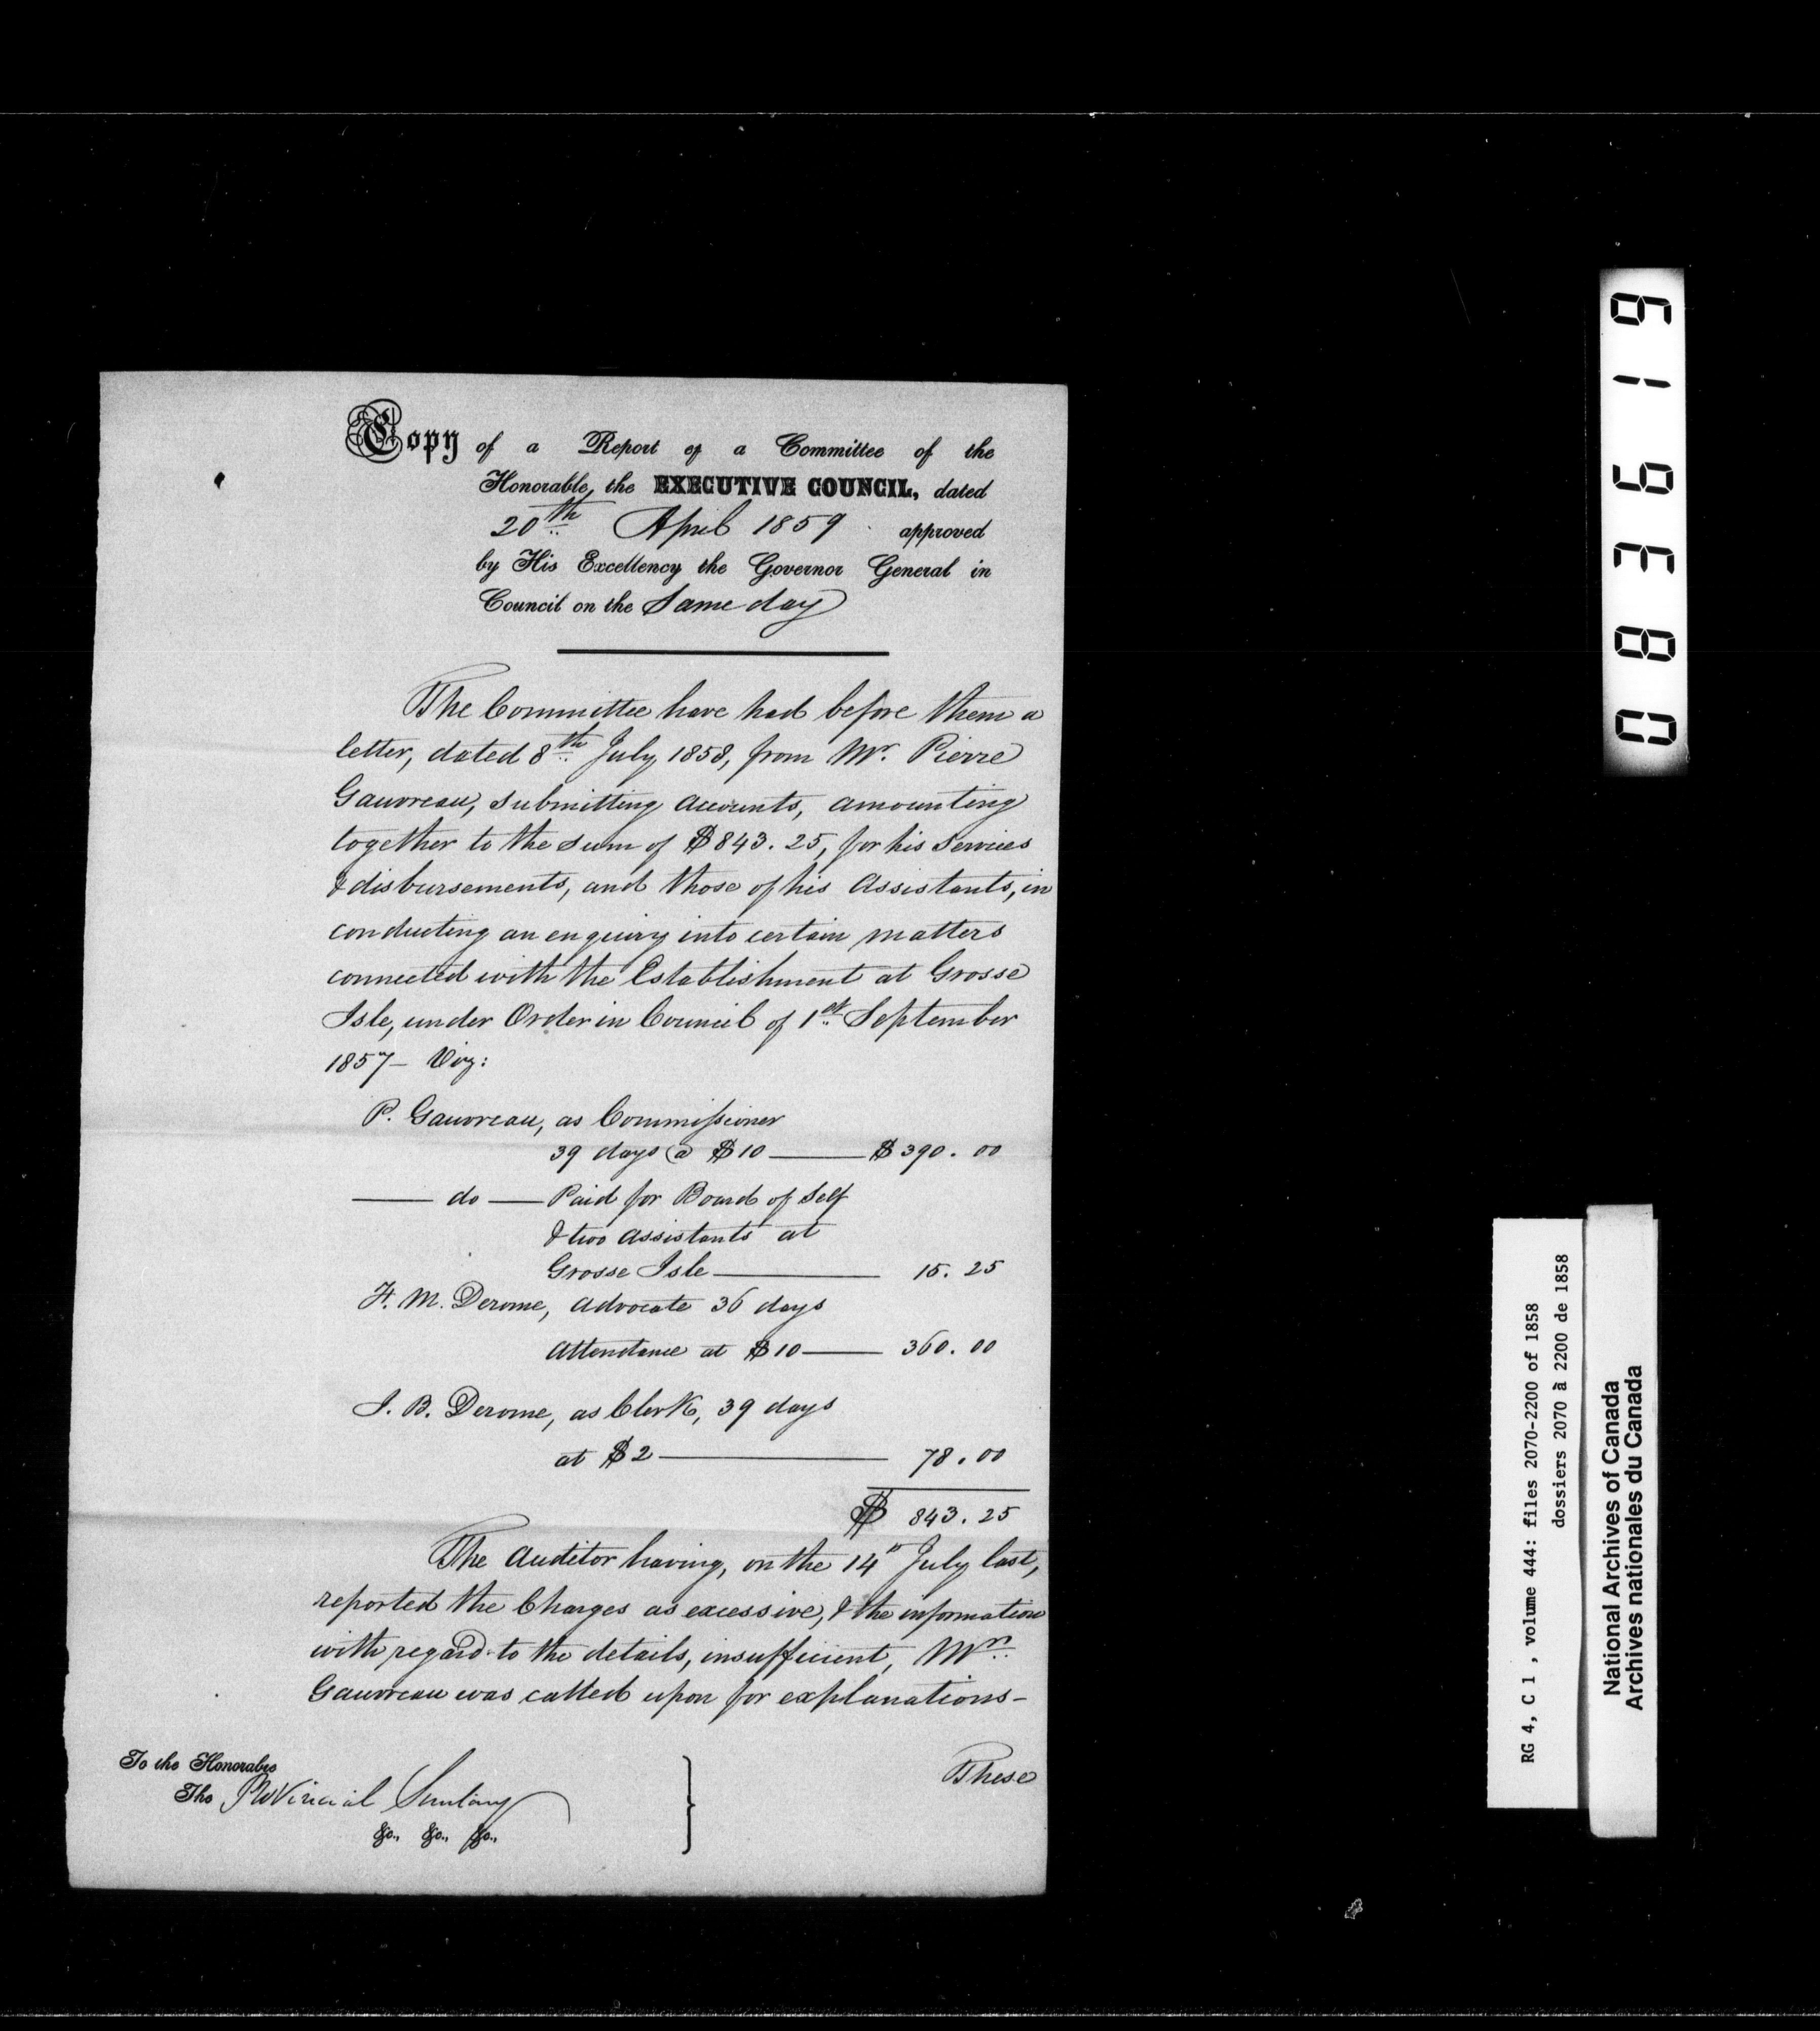 Copy of a Report of a Committee of the
Honorable, the EXECUTIVE COUNCIL, dated
20th April 1859 approved
by His Excellency the Governor General in
Council on the Same day
The Committee have had before them a
letter, dated 8th July 1858, from Mr. Pierre
Gauvreau, submitting Accounts, amounting
together to the sum of $843.25, for his Services
& disbursements, and those of his Assistants, in
conducting an enquiry into certain matters
connected with the Establishment at Grosse
Isle, under Order in Council of 1st September
1857 - Viz:
P. Gauvreau, as Commissioner
39 days @ $10 — $390.00
— do — Paid for Board of Self
& two Assistants at
Grosse Isle — 15.25
F. M. Derome, Advocate 36 days
Attendance at $10 — 360.00
J. B. Derome, as Clerk, 39 days
at $2 — 78.00
$ 843.25
The Auditor having, on the 14th July last,
reported the Charges as excessive, & the information
with regard to the details, insufficient, Mr.
Gauvreau was called upon for explanations -
These
To the Honorable
The Provincial Secretary
&c., &c., &c.,
083619
RG 4, C 1 , volume 444: files 2070-2200 of 1858
dossiers 2070 à 2200 de 1858
National Archives of Canada
Archives nationales du Canada